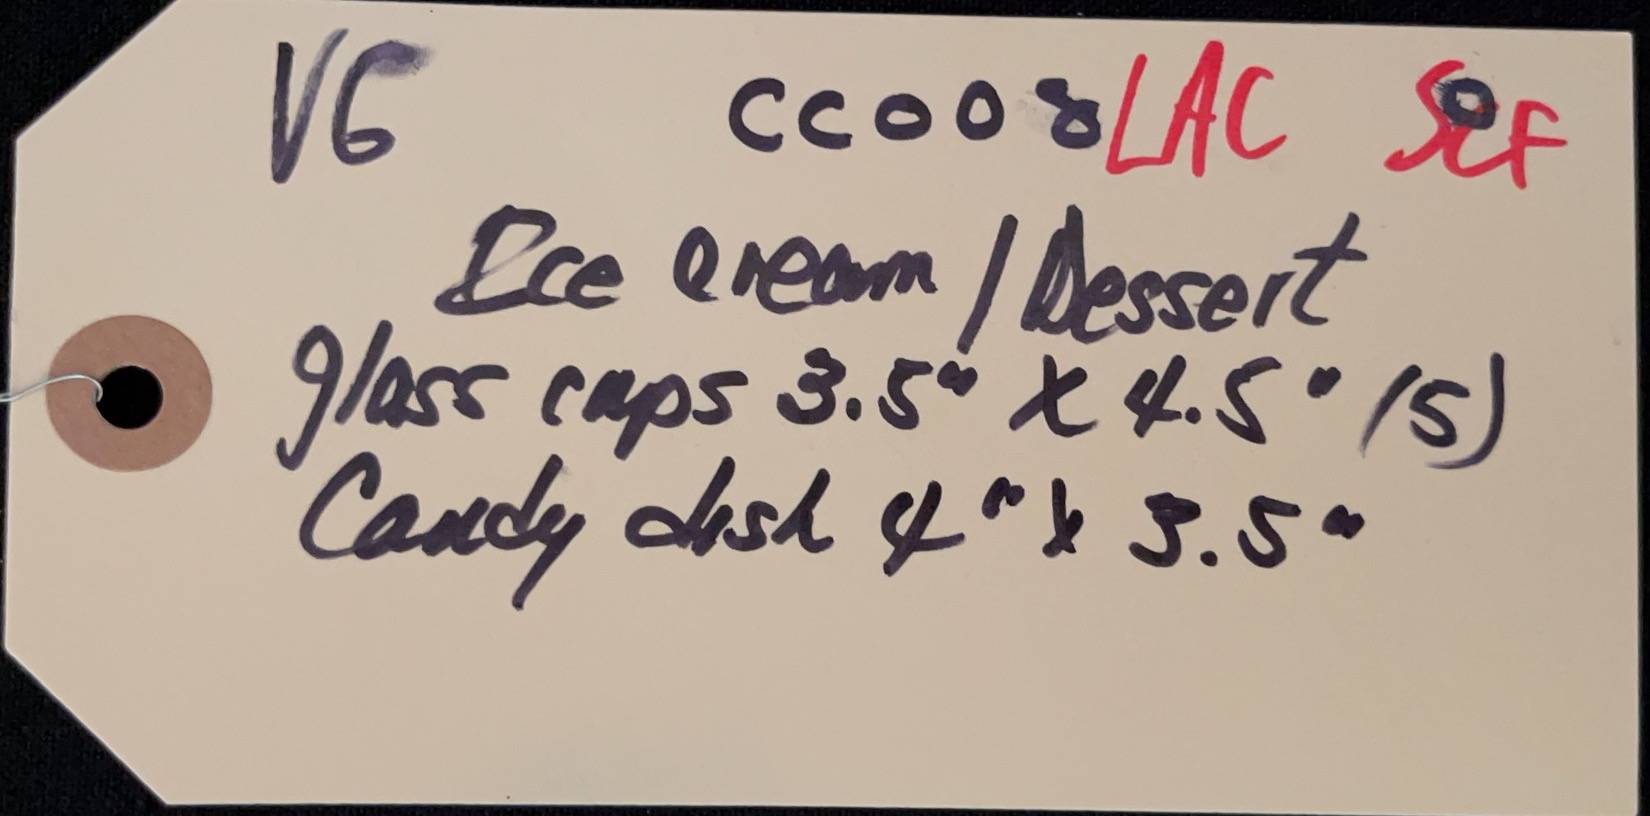 VG CC008 LAC
Ice cream / Dessert
glass cups 3.5" X 4.5" (5)
Candy dish 4" x 3.5"